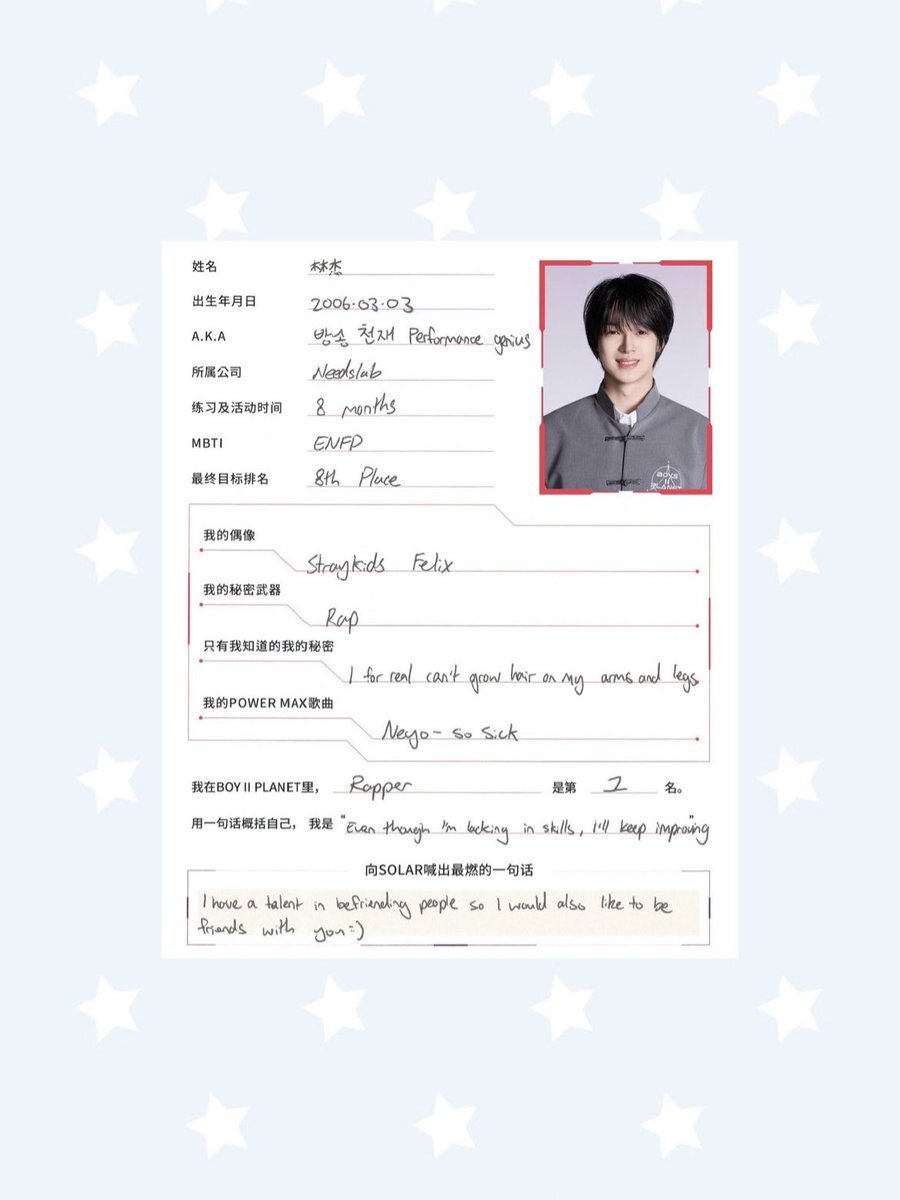 姓名 林杰
出生年月日 2006.03.03
A.K.A 방송 천재 Performance genius
所属公司 Needslab
练习及活动时间 8 months
MBTI ENFP
最终目标排名 8th Place
BOYS
II
PLANET
我的偶像
Straykids Felix
我的秘密武器
Rap
只有我知道的我的秘密
I for real can't grow hair on my arms and legs
我的POWER MAX歌曲
Neyo - so sick
我在BOY II PLANET里， Rapper 是第 1 名。
用一句话概括自己， 我是 "Even though I'm lacking in skills, I'll keep improving"
向SOLAR喊出最燃的一句话
I have a talent in befriending people so I would also like to be
friends with you :)